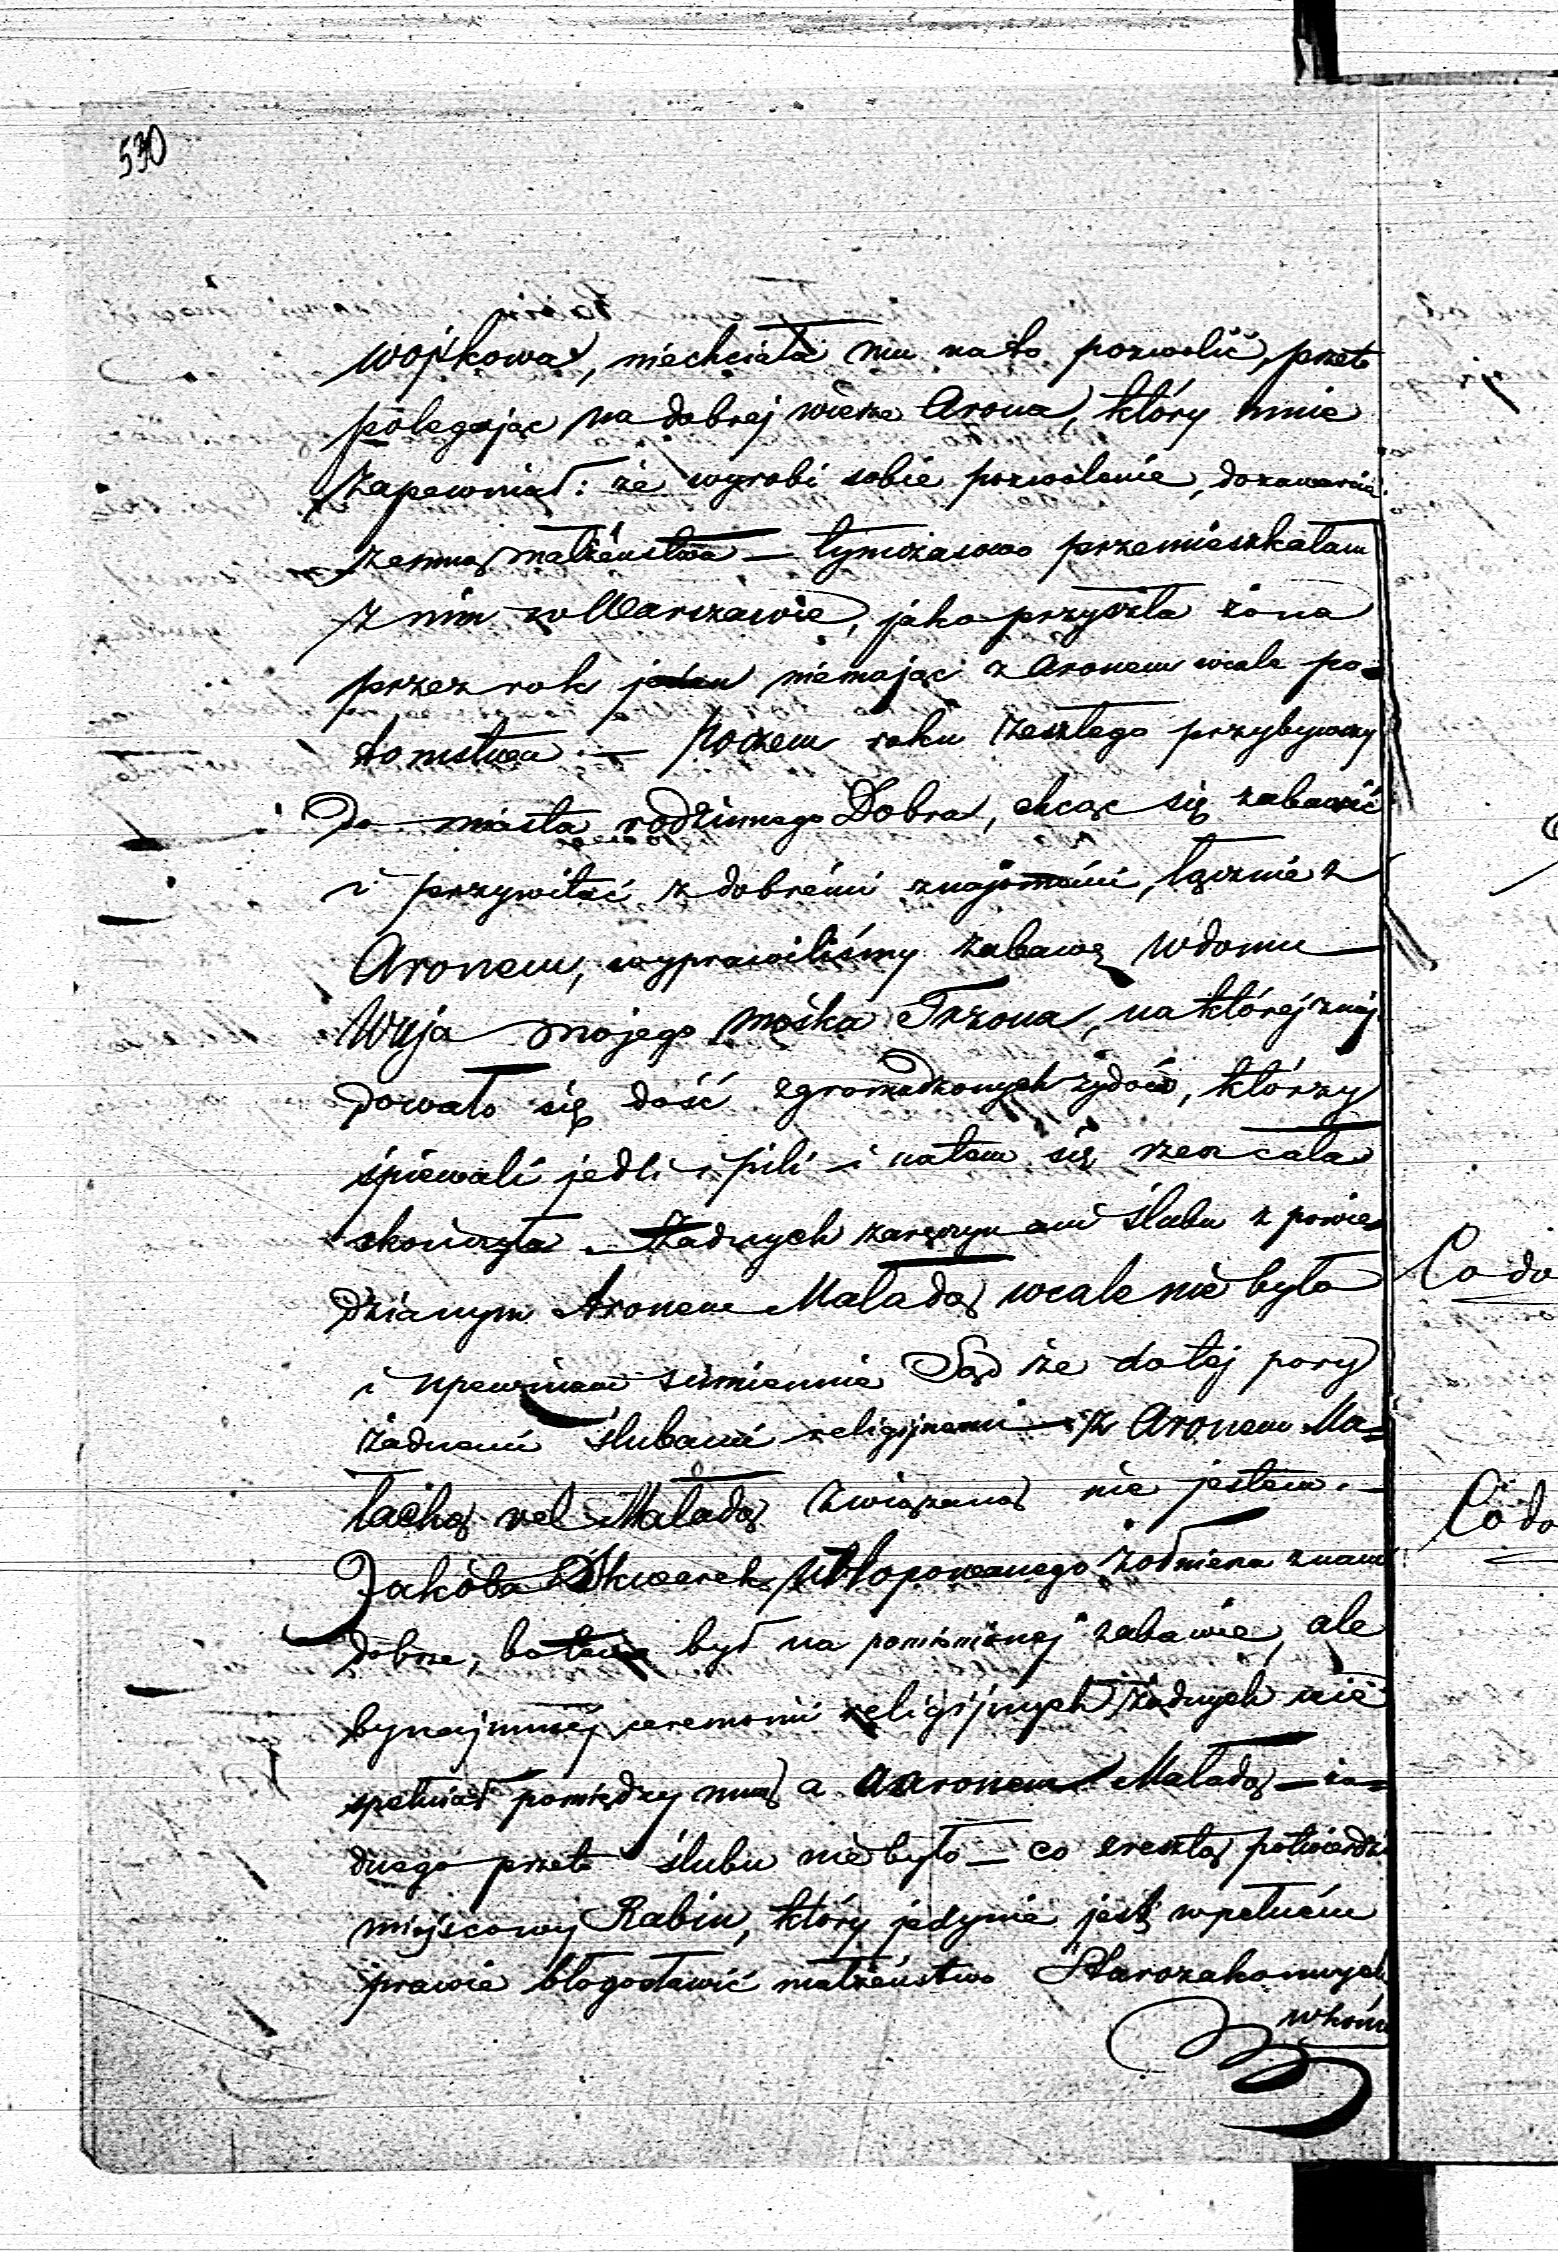 530
wojskowa, niechciała mu na to pozwolić, przeto
polegając na dobrej wierze Arona, który mnie
zapewniał: że wyrobi sobie pozwolenie, do zawarcia
zemną małżeństwa — tymczasowo przemieszkałam
z nim w Warszawie, jako przyszła żona
przez rok jeden niemając z Aronem wcale po-
tomstwa. — Poczem roku zeszłego przybywszy
do miasta rodzinnego Dobra, chcąc się zabawić
i przywitać z dobremi znajomemi, łącznie z
Aronem, wyprawiliśmy zabawę w domu
Wuja mojego Moska Trzona, na której znaj
dowało się dość zgromadzonych żydów, którzy
śpiewali jedli i pili i na tem się rzecz cała
skończyła. Żadnych zaręczyn ani ślubu z powie
dzianym Aronem Maładą wcale nie było
i upewniam sumiennie Sąd że do tej pory
żadnemi ślubami religijnemi z Aronem Ma=
łachą vel Maładą związaną nie jestem. —
Jakóba Skwerek urlopowanego żołnierza znam
dobrze, bo był na pomienionej zabawie, ale
bynajmniej ceremonii religijnych żadnych nie
spełniał pomiędzy mną a Aaronem Maładą — ża=
dnego przeto ślubu nie było — co zresztą potwierdzi
miejscowy Rabin, który jedynie jest w pełném
prawie błogosławić małżeństwo Starozakonnych
Co do
Co do